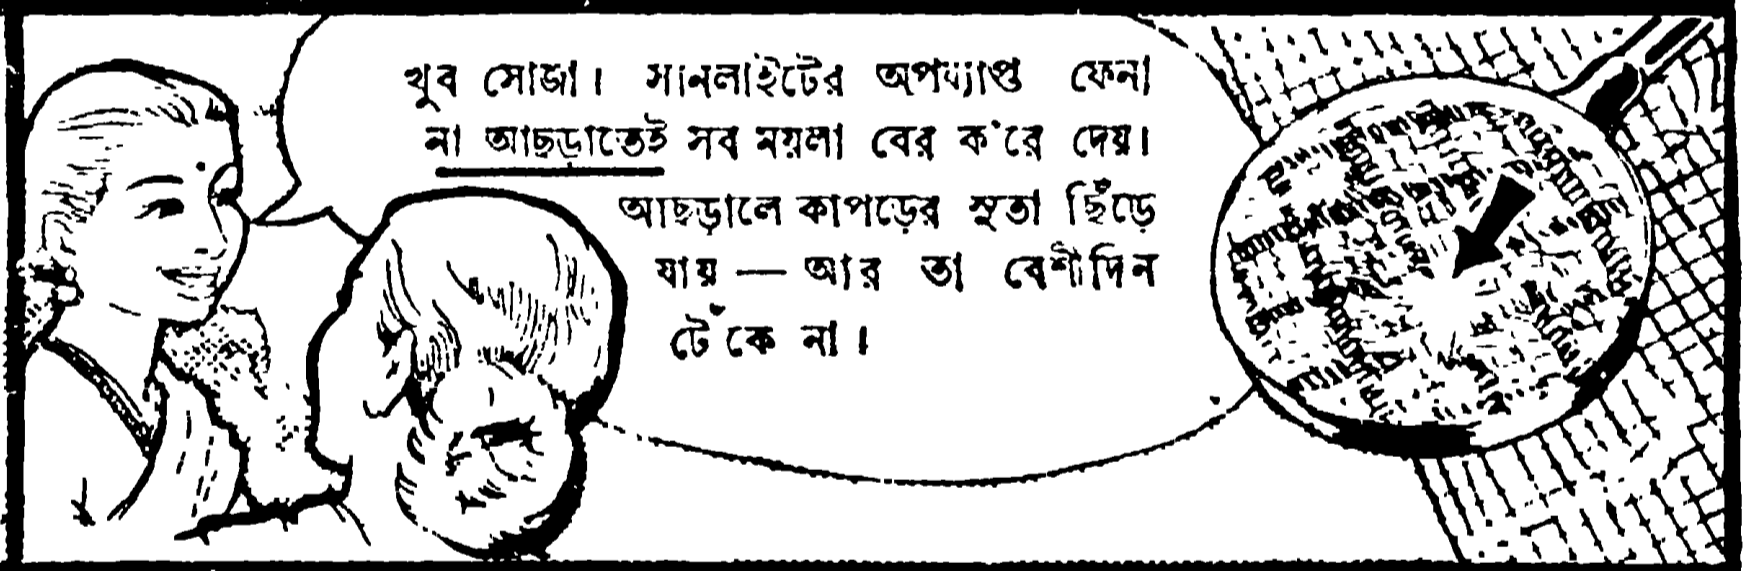 খুব সোজা। সানলাইটের অপর্য্যাপ্ত ফেনা
না আছড়াতেই সব ময়লা বের ক'রে দেয়।
আছড়ালে কাপড়ের সুতা ছিঁড়ে
যায় — আর তা বেশীদিন
টেঁকে না।